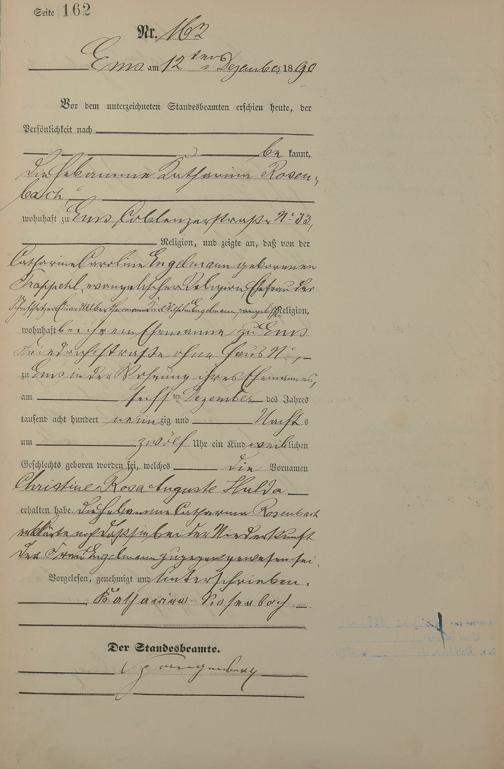 Seite 162
Nr. 162
Ems am 12ten Dezember 1890
Vor dem unterzeichneten Standesbeamten erschien heute, der
Persönlichkeit nach
be kannt,
die Hebamme Katharina Rosen-
bach,
wohnhaft zu Ems, Coblenzerstraße No 33,
Religion, und zeigte an, daß von der
Catharine Caroline Engelmann geborenen
evangelischer Religion Ehefrau des
Engelmann Religion,
wohnhaft bei ihrem Ehemanne zu Ems
Friedrichstraße ohne Haus No,
zu Ems in der Wohnung ihres Ehemannes,
am sechsten Dezember des Jahres
tausend acht hundert neunzig und Nachts
um zwölf Uhr ein Kind weiblichen
Geschlechts geboren worden sei, welches die Vornamen
Christine Rosa Auguste Hulda
erhalten habe. Die Hebamme Catharina Rosenbach
erklärte noch daß sie bei der Niederkunft
der Frau Engelmann zugegen gewesen sei.
Vorgelesen, genehmigt und unterschrieben.
Katharina Rosenbach
Der Standesbeamte.
Spangenberg